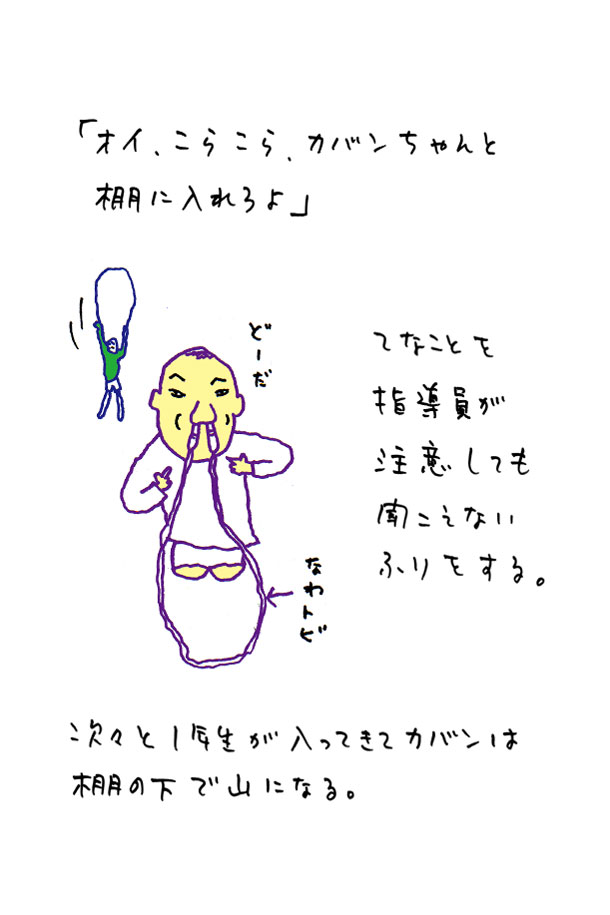 「オイ、こらこら、カバンちゃんと
棚に入れろよ」
どーだ
てなことを
指導員が
注意しても
聞こえない
ふりをする。
なわトビ
次々と1年生が入ってきてカバンは
棚の下で山になる。